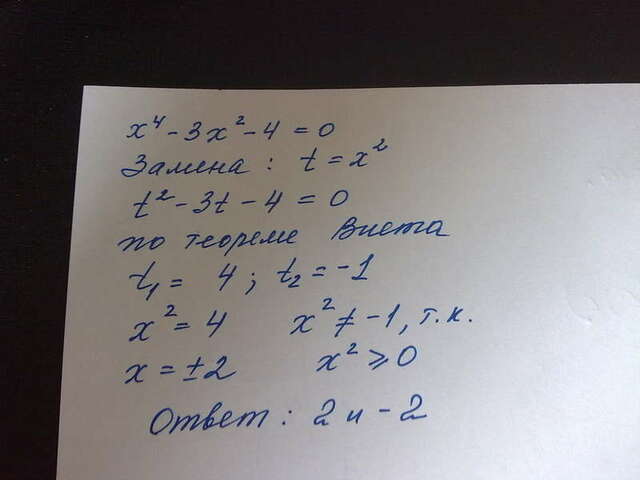 x⁴ - 3x² - 4 = 0
Замена: t = x²
t² - 3t - 4 = 0
по теореме Виета
t₁ = 4; t₂ = -1
x² = 4 x² ≠ -1, т.к.
x = ±2 x² ⩾ 0
Ответ: 2 и -2